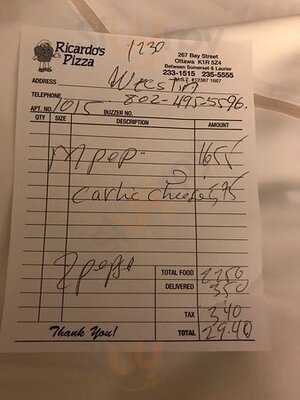 Ricardo's Pizza
1230
267 Bay Street
Ottawa K1R 5Z4
Between Somerset & Laurier
233-1515 235-5555
ADDRESS Westin
TELEPHONE 802-495-5596.
APT. NO. 1015 BUZZER NO.
QTY SIZE DESCRIPTION AMOUNT
M pep - 1655
Garlic cheese 595
2 pepsi
TOTAL FOOD 2250
DELIVERED 350
TAX 340
Thank You! TOTAL 29.40